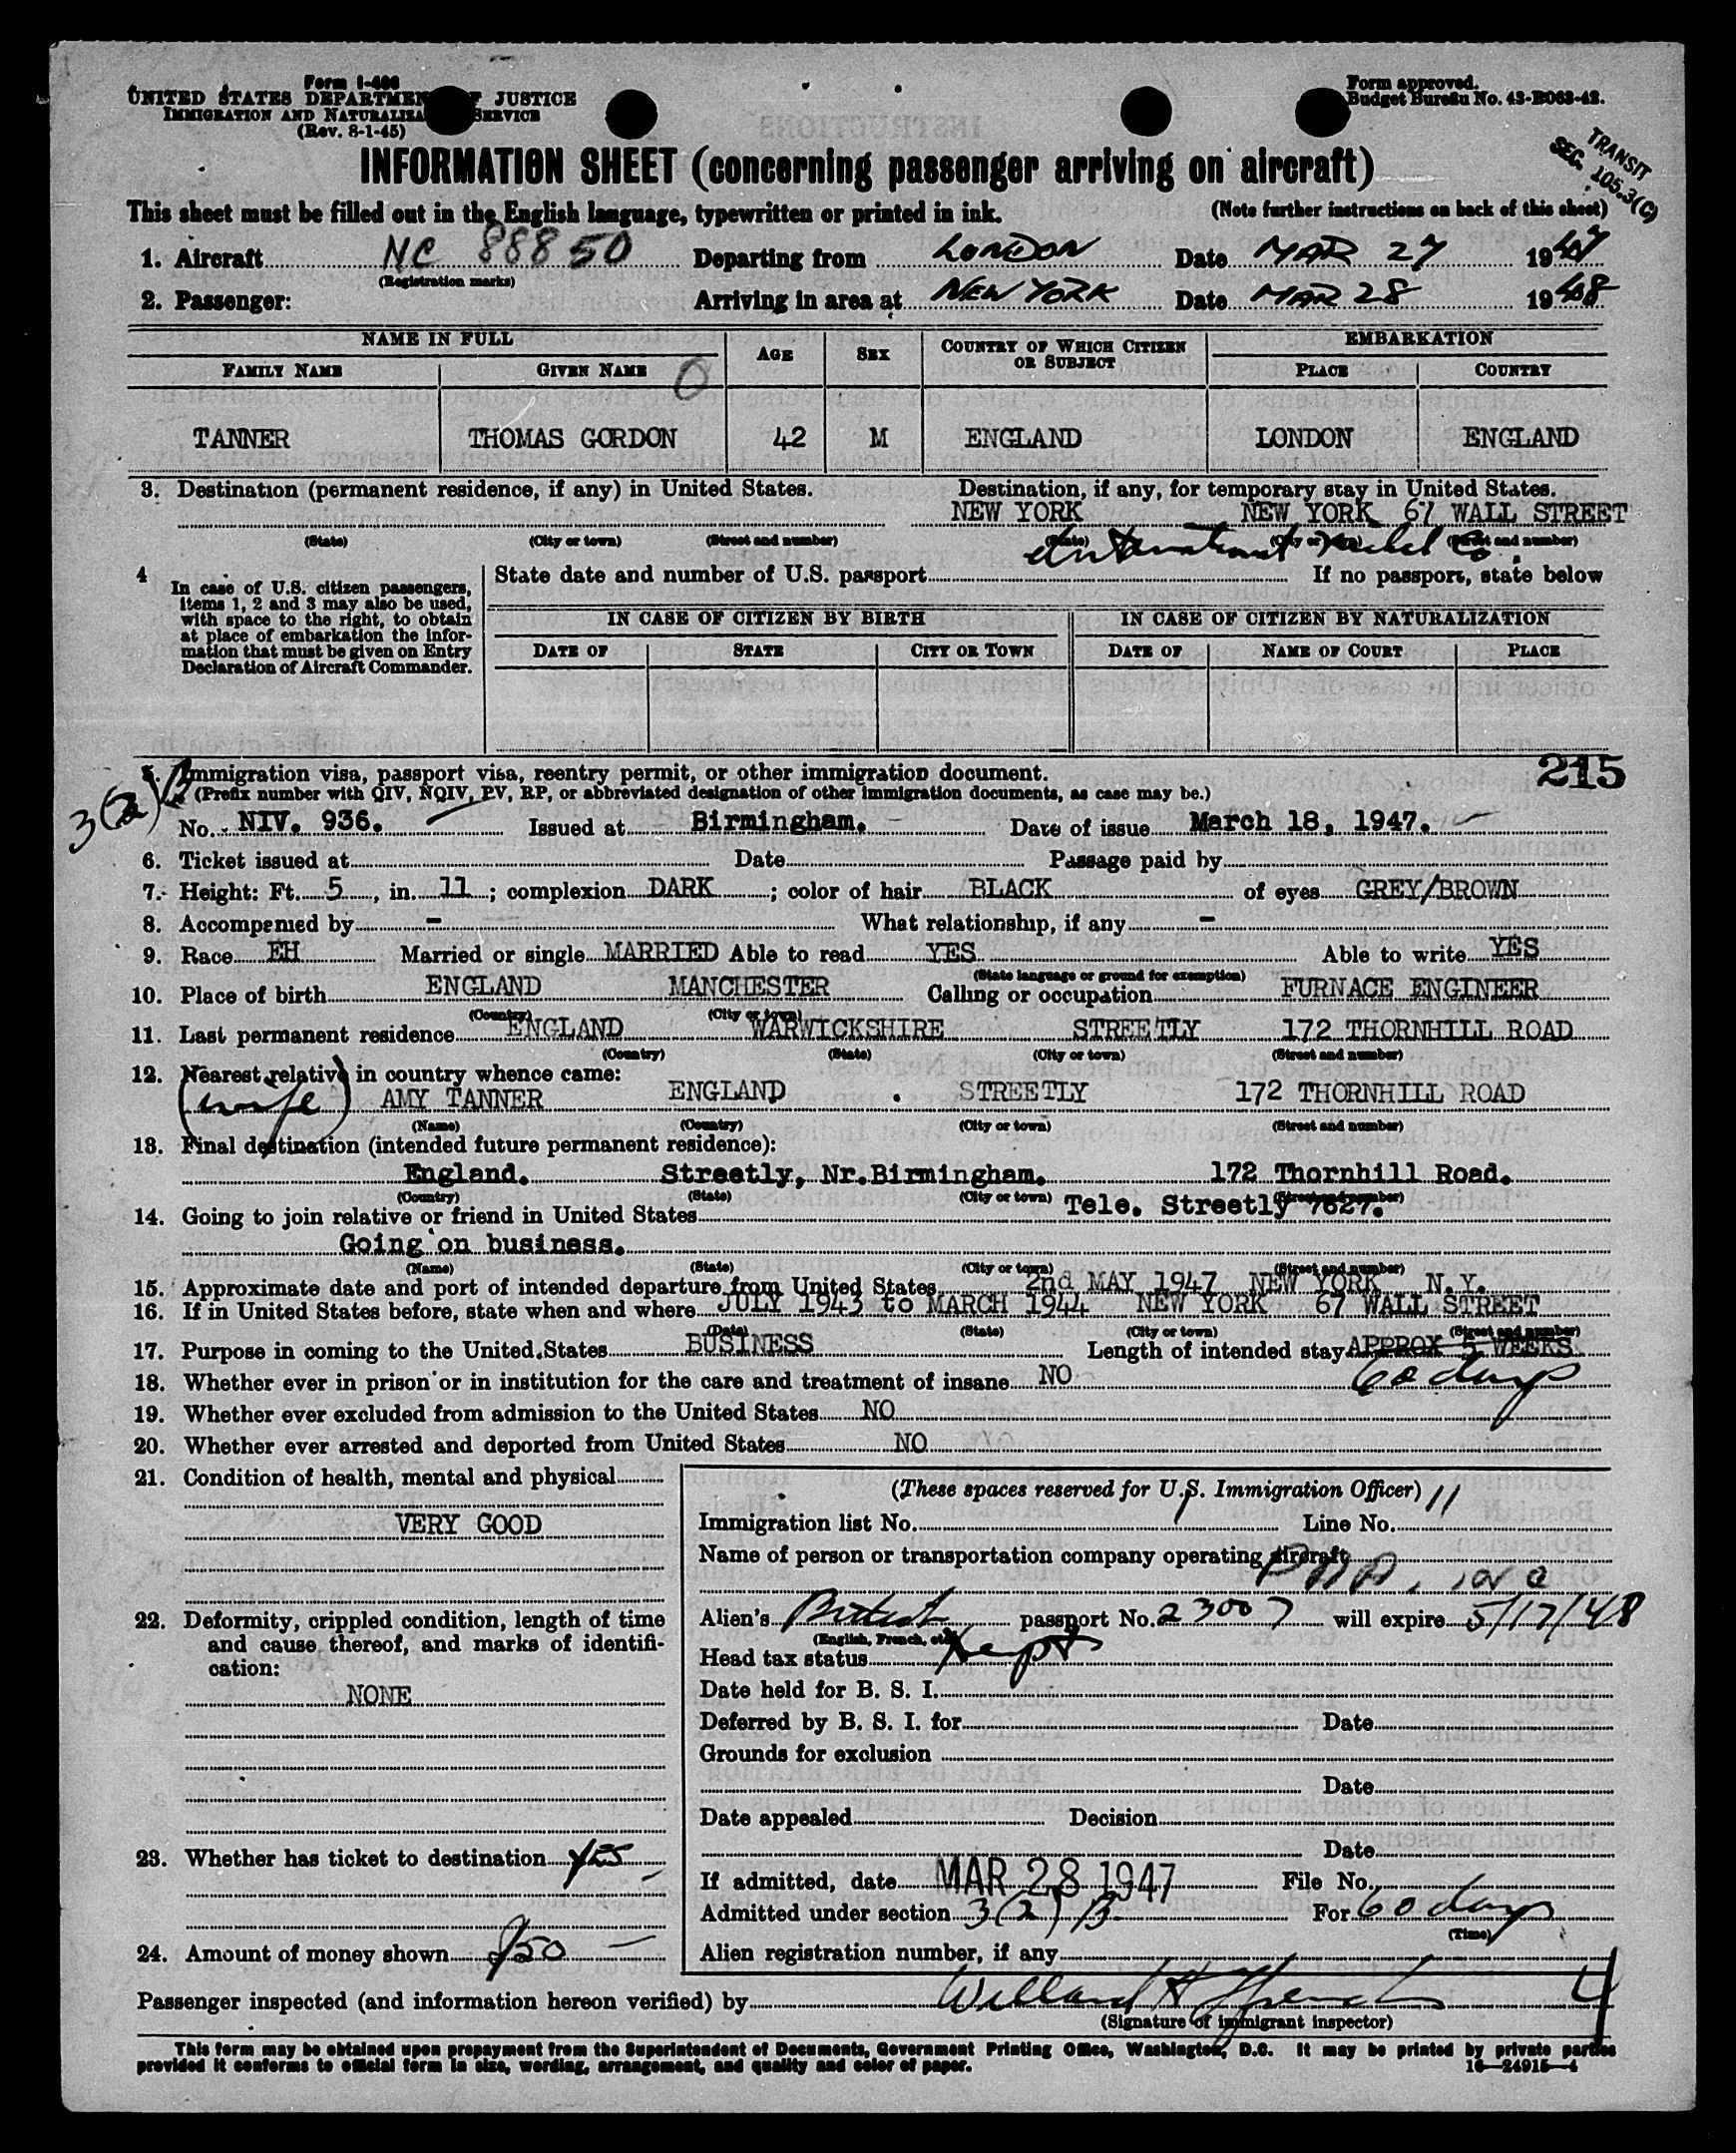 Form I-466
UNITED STATES DEPARTMENT OF JUSTICE
IMMIGRATION AND NATURALIZATION SERVICE
(Rev. 8-1-45)
Form approved.
Budget Bureau No. 43-R063-42.
TRANSIT
SEC. 105.3(C)
INFORMATION SHEET (concerning passenger arriving on aircraft)
This sheet must be filled out in the English language, typewritten or printed in ink. (Note further instructions on back of this sheet)
1. Aircraft NC 88850 Departing from LONDON Date MAR 27 1947
(Registration marks)
2. Passenger: Arriving in area at NEW YORK Date MAR 28 1948
NAME IN FULL AGE SEX COUNTRY OF WHICH CITIZEN OR SUBJECT EMBARKATION
FAMILY NAME GIVEN NAME PLACE COUNTRY
TANNER THOMAS GORDON 42 M ENGLAND LONDON ENGLAND
3. Destination (permanent residence, if any) in United States. Destination, if any, for temporary stay in United States.
NEW YORK NEW YORK 67 WALL STREET
(State) (City or town) (Street and number) (State) (City or town) (Street and number)
International Nickel Co.
4 In case of U.S. citizen passengers, items 1, 2 and 3 may also be used, with space to the right, to obtain at place of embarkation the information that must be given on Entry Declaration of Aircraft Commander.
State date and number of U.S. passport If no passport, state below
IN CASE OF CITIZEN BY BIRTH IN CASE OF CITIZEN BY NATURALIZATION
DATE OF STATE CITY OR TOWN DATE OF NAME OF COURT PLACE
215
3(2)B
5. Immigration visa, passport visa, reentry permit, or other immigration document.
(Prefix number with QIV, NQIV, PV, RP, or abbreviated designation of other immigration documents, as case may be.)
No. NIV. 936. Issued at Birmingham. Date of issue March 18, 1947.
6. Ticket issued at Date Passage paid by
7. Height: Ft. 5, in. 11; complexion DARK; color of hair BLACK of eyes GREY/BROWN
8. Accompanied by - What relationship, if any -
9. Race EH Married or single MARRIED Able to read YES Able to write YES
(State language or ground for exemption)
10. Place of birth ENGLAND MANCHESTER Calling or occupation FURNACE ENGINEER
(Country) (City or town)
11. Last permanent residence ENGLAND WARWICKSHIRE STREETLY 172 THORNHILL ROAD
(Country) (State) (City or town) (Street and number)
12. Nearest relative in country whence came:
(wife) AMY TANNER ENGLAND . STREETLY 172 THORNHILL ROAD
(Name) (Country) (City or town) (Street and number)
13. Final destination (intended future permanent residence):
England. Streetly, Nr.Birmingham. 172 Thornhill Road.
(Country) (State) (City or town) (Street and number)
14. Going to join relative or friend in United States Tele. Streetly 7627.
Going on business.
(Name) (State) (City or town) (Street and number)
15. Approximate date and port of intended departure from United States 2nd MAY 1947 NEW YORK N.Y.
16. If in United States before, state when and where JULY 1943 to MARCH 1944 NEW YORK 67 WALL STREET
(Date) (State) (City or town) (Street and number)
17. Purpose in coming to the United States BUSINESS Length of intended stay APPROX 5 WEEKS
60 days
18. Whether ever in prison or in institution for the care and treatment of insane NO
19. Whether ever excluded from admission to the United States NO
20. Whether ever arrested and deported from United States NO
21. Condition of health, mental and physical
VERY GOOD
22. Deformity, crippled condition, length of time and cause thereof, and marks of identification:
NONE
23. Whether has ticket to destination YES
24. Amount of money shown $50
(These spaces reserved for U.S. Immigration Officer)
Immigration list No. 1 Line No. 11
Name of person or transportation company operating aircraft
Alien's British passport No. 23007 will expire 5/17/48
(English, French, etc.)
Head tax status Exempt
Date held for B. S. I.
Deferred by B. S. I. for Date
Grounds for exclusion
Date
Date appealed Decision
Date
If admitted, date MAR 28 1947 File No.
Admitted under section 3(2)B For 60 days
(Time)
Alien registration number, if any
Passenger inspected (and information hereon verified) by Willard
(Signature of immigrant inspector)
This form may be obtained upon prepayment from the Superintendent of Documents, Government Printing Office, Washington, D.C. It may be printed by private parties
provided it conforms to official form in size, wording, arrangement, and quality and color of paper. 16—24915-4